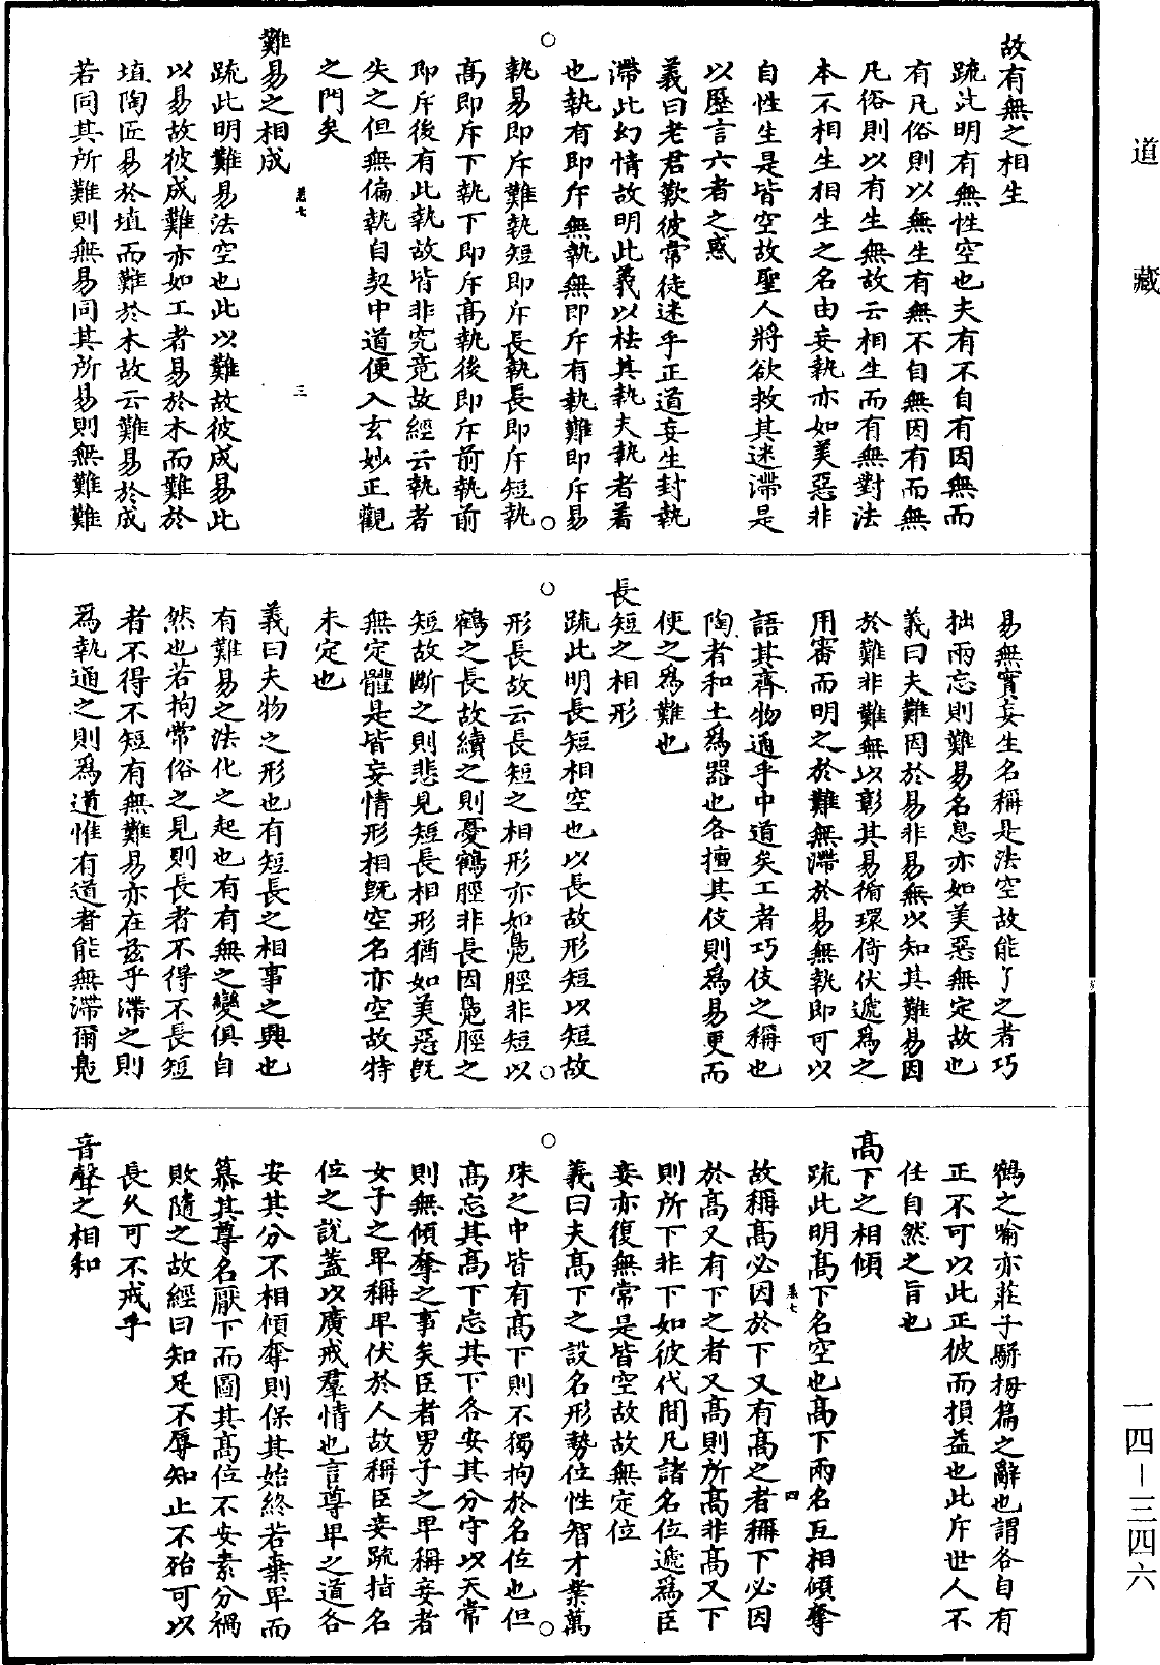 道藏
故有無之相生
疏此明有無性空也夫有不自有因無而
有凡俗則以無生有無不自無因有而無
凡俗則以有生無故云相生而有無對法
本不相生相生之名由妄執亦如美惡非
自性生是皆空故聖人將欲救其迷滯是
以歷言六者之惑
義曰老君歎彼常徒迷乎正道妄生封執
滯此幻情故明此義以祛其執夫執者着
也執有即斥無執無即斥有執難即斥易
執易即斥難執短即斥長執長即斥短執
高即斥下執下即斥高執後即斥前執前
即斥後有此執故皆非究竟故經云執者
失之但無偏執自契中道便入玄妙正觀
之門矣
難易之相成
卷七
三
疏此明難易法空也此以難故彼成易此
以易故彼成難亦如工者易於木而難於
埴陶匠易於埴而難於木故云難易於成
若同其所難則無易同其所易則無難難
易無實妄生名稱是法空故能了之者巧
拙兩忘則難易名息亦如美惡無定故也
義曰夫難因於易非易無以知其難易因
於難非難無以彰其易循環倚伏遞為之
用審而明之於難無滯於易無執即可以
語其齊物通乎中道矣工者巧伎之稱也
陶者和土為器也各擅其伎則為易更而
使之為難也
長短之相形
疏此明長短相空也以長故形短以短故
形長故云長短之相形亦如鳧脛非短以
鶴之長故續之則憂鶴脛非長因鳧脛之
短故斷之則悲見短長相形猶如美惡既
無定體是皆妄情形相既空名亦空故特
未定也
義曰夫物之形也有短長之相事之興也
有難易之法化之起也有有無之變俱自
然也若拘常俗之見則長者不得不長短
者不得不短有無難易亦在茲乎滯之則
為執通之則為道惟有道者能無滯爾鳧
鶴之喻亦莊子駢拇篇之辭也謂各自有
正不可以此正彼而損益也此斥世人不
任自然之旨也
高下之相傾
卷七
四
疏此明高下名空也高下兩名互相傾奪
故稱高必因於下又有高之者稱下必因
於高又有下之者又高則所高非高又下
則所下非下如彼代間凡諸名位遞為臣
妾亦復無常是皆空故故無定位
義曰夫高下之設名形勢位性智才業萬
殊之中皆有高下則不獨拘於名位也但
高忘其高下忘其下各安其分守以天常
則無傾奪之事矣臣者男子之卑稱妾者
女子之卑稱卑伏於人故稱臣妾疏指名
位之說蓋以廣戒羣情也言尊卑之道各
安其分不相傾奪則保其始終若棄卑而
慕其尊名厭下而圖其高位不安素分禍
敗隨之故經曰知足不辱知止不殆可以
長久可不戒乎
音聲之相和
一四—三四六